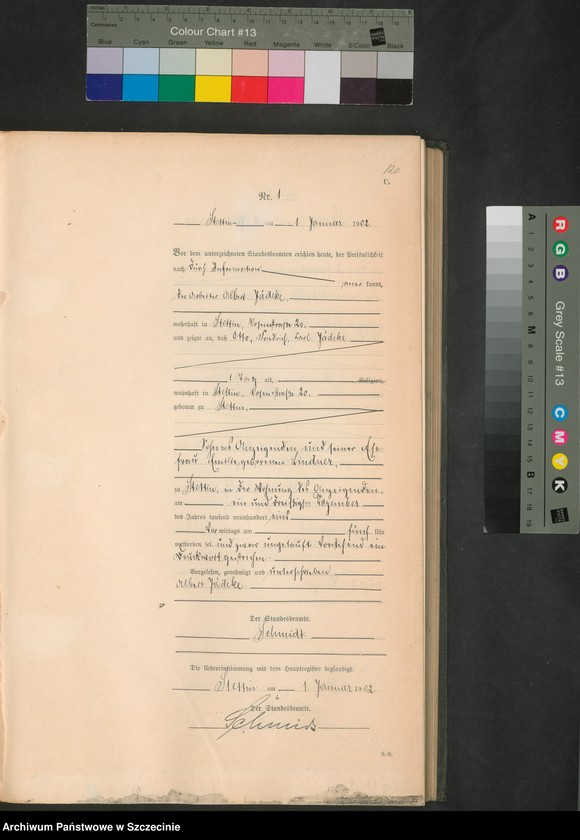 Colour Chart #13
Blue Cyan Green Yellow Red Magenta White 3/Color Black
Grey Scale #13
A 1 2 3 4 5 6 M 8 9 10 11 12 13 14 15 B 17 18 19
R G B C M Y K
120
C.
Nr. 1
Stettin am 1 Januar 1902.
Vor dem unterzeichneten Standesbeamten erschien heute, der Persönlichkeit
nach durch Information
kannt,
der Arbeiter Albert Jädeke,
wohnhaft in Stettin, Rosenstraße 20.
und zeigte an, daß Otto, Friedrich, Carl Jädeke
1 Tag alt, Religion,
wohnhaft in Stettin, Rosenstraße 20.
geboren zu Stettin,
Sohn des Anzeigenden und seiner Ehe-
frau Emilie, geborenen Lindner,
zu Stettin, in der Wohnung des Anzeigenden,
am ein und dreißigsten Dezember
des Jahres tausend neunhundert eins
Vor mittags um fünf Uhr
verstorben sei und zwar ungetauft. Vorstehend ein
Druckwort gestrichen.
Vorgelesen, genehmigt und unterschrieben
Albert Jädeke.
Der Standesbeamte.
Schmidt.
Die Uebereinstimmung mit dem Hauptregister beglaubigt.
Stettin am 1 Januar 1902.
Der Standesbeamte.
Schmidt
Archiwum Państwowe w Szczecinie